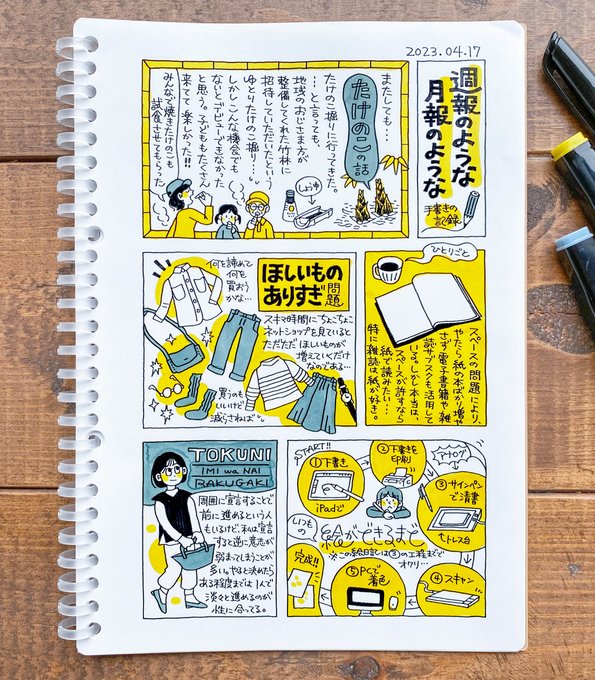 2023.04.17
週報のような
月報のような
手書きの
記録
たけのこの話
またしても…
たけのこ掘りに行ってきた。
…と言っても、
地域のおじさま方が
整備してくれた竹林に
招待していただいたという
ゆとりたけのこ掘り…
しかしこんな機会でも
ないとデビューできなかった
と思う。子どももたくさん
来てて楽しかった!!
みんなで焼きたけのこも
試食させてもらった
しょうゆ
ほしいもの
ありすぎ問題
何を諦めて
何を
買おう
かな…
スキマ時間にちょこちょこ
ネットショップを見ていると
ただただほしいものが
増えていくだけ
なのである…
買うのも
いいけど
減らさねば
ひとりごと
スペースの問題により、
やたら紙の本ばかり増や
さず、電子書籍や雑
誌サブスクも活用して
いる。しかし本当は、
スペースが許すなら
紙で読みたい…
特に雑誌は紙が好き。
TOKUNI
IMI wa NAI
RAKUGAKI
周囲に宣言することで
前に進めるという人
もいるけど、私は宣言
すると逆に意志が
弱まってしまうことが
多い。やると決めたら
ある程度までは1人で
淡々と進めるのが
性に合ってる。
START!!
①下書き
iPadで
②下書きを
印刷
アナログ
③サインペン
で清書
トレス台
④スキャン
⑤PCで
着色
完成!!
いつもの
絵ができるまで
※この絵日記は③の工程までで
オワリ…